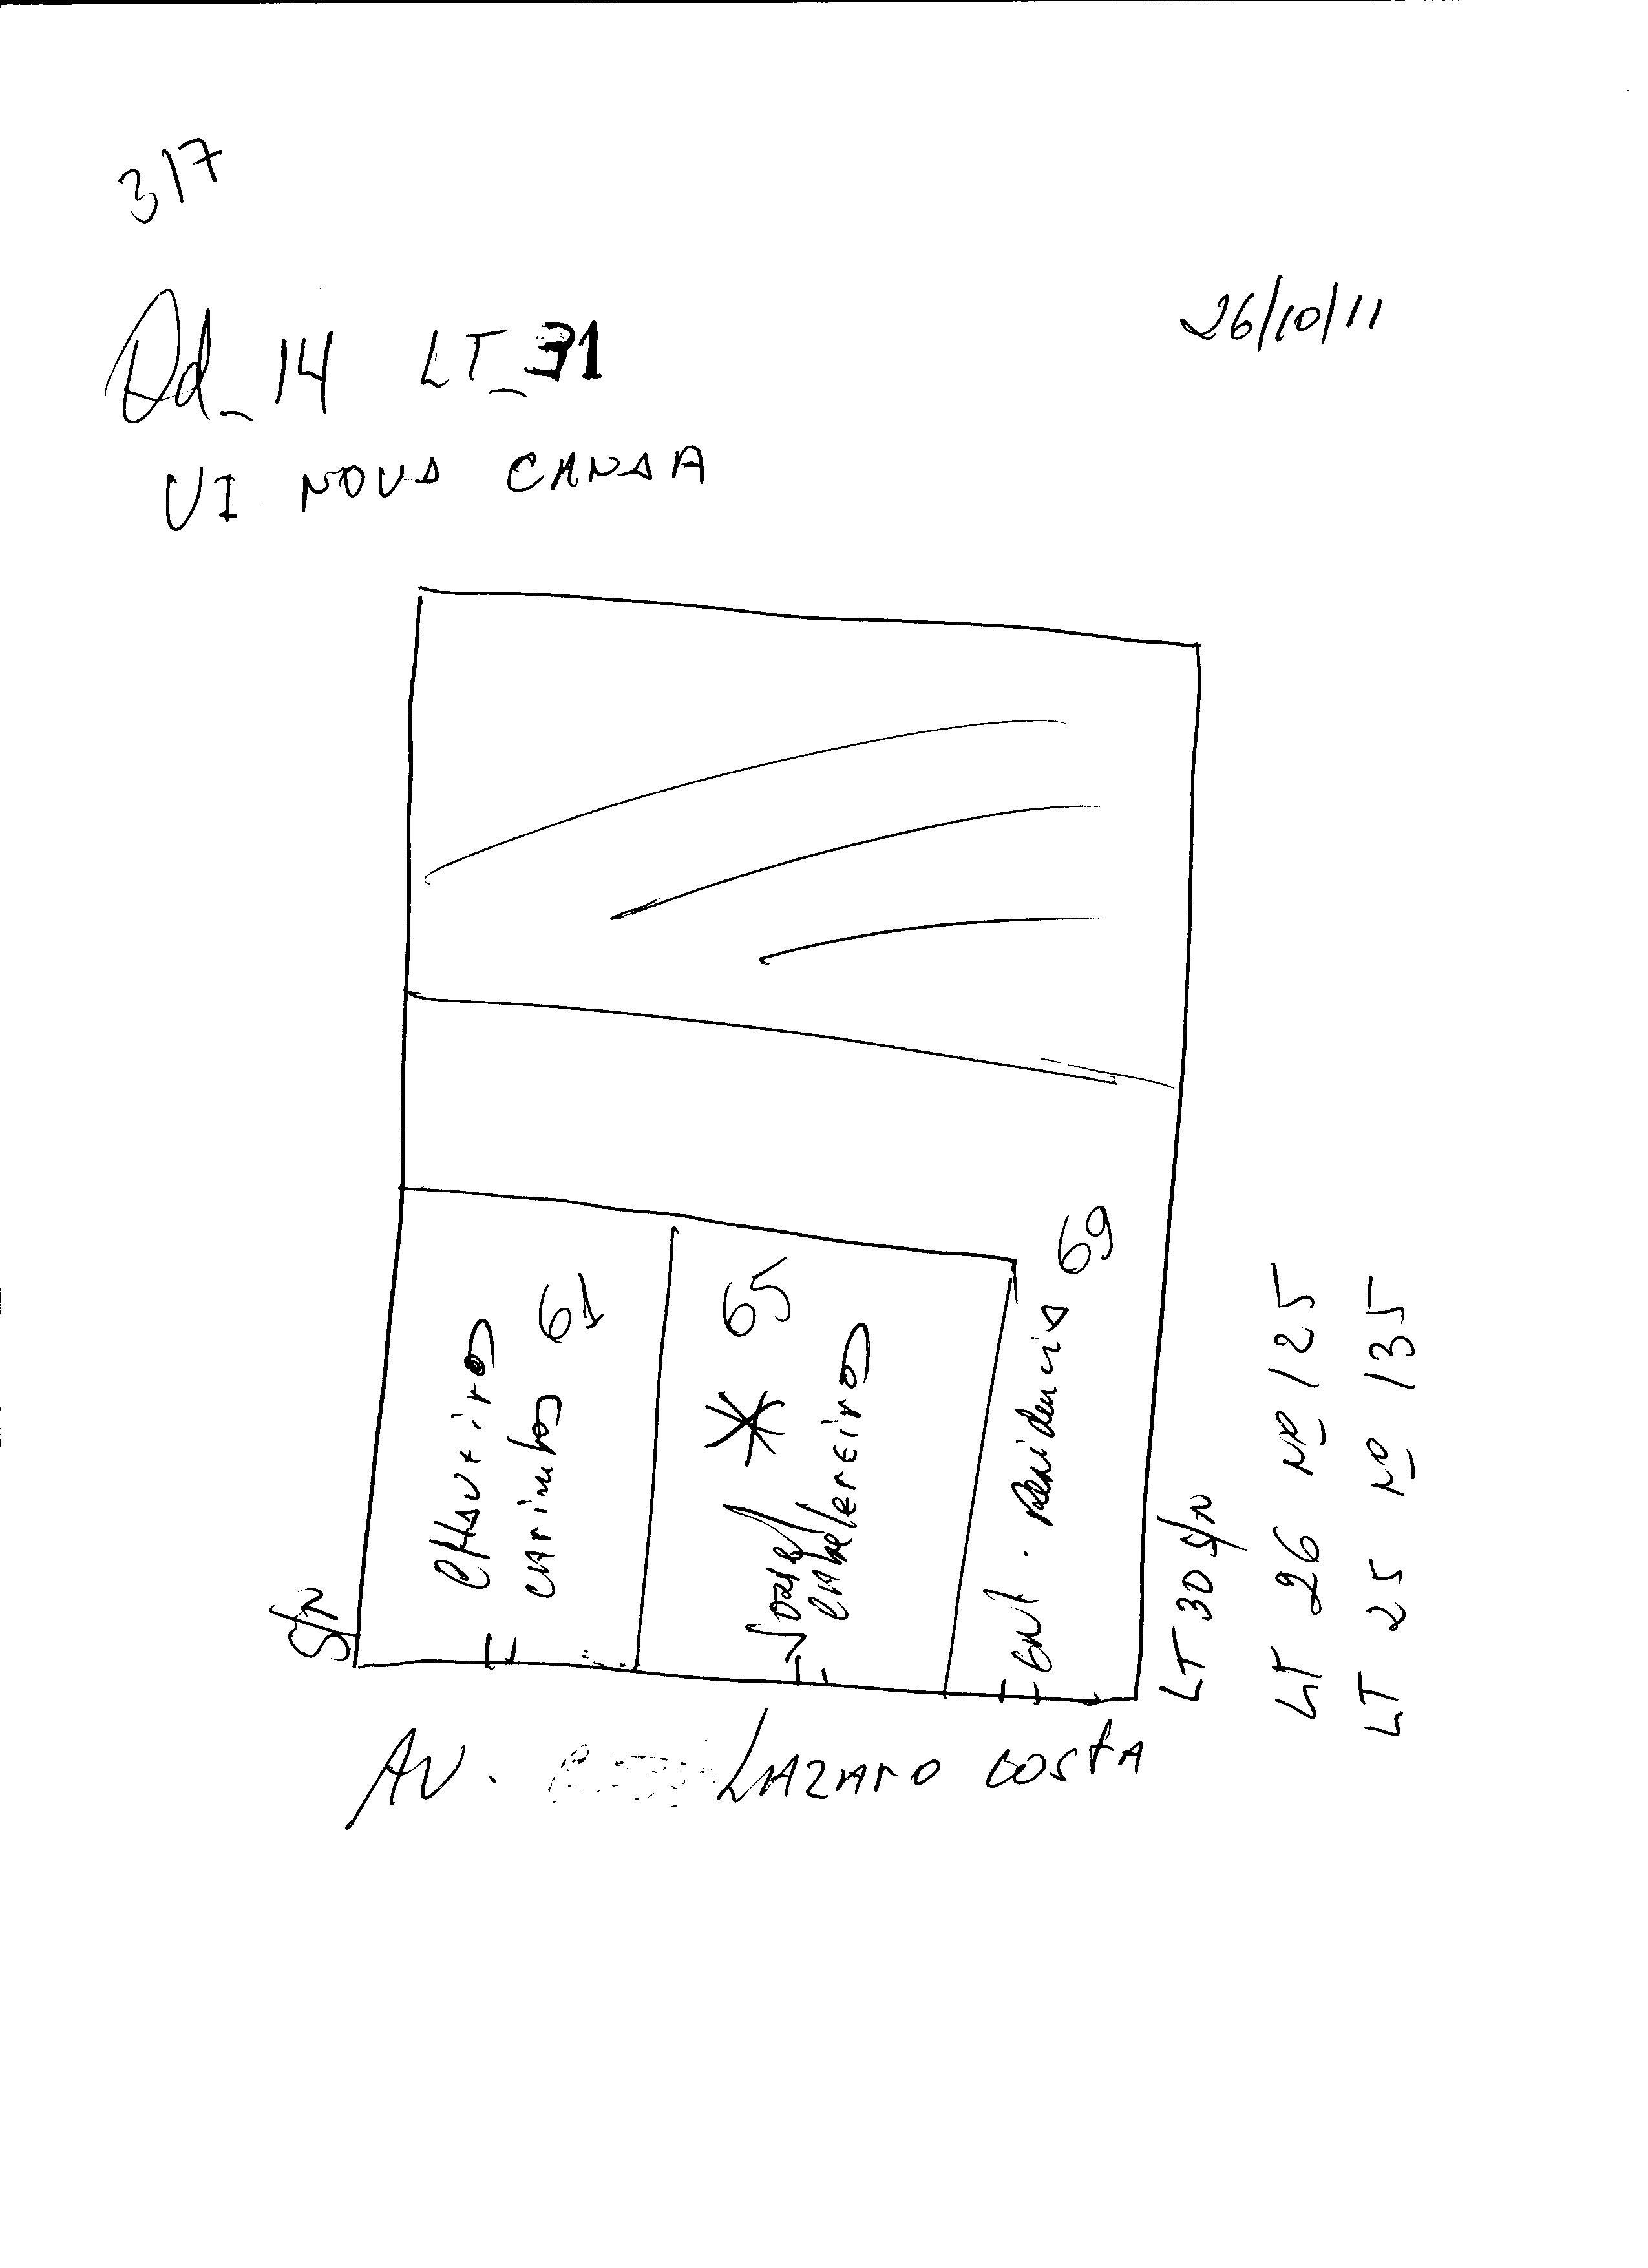 317
Qd_14 LT_31
26/10/11
VI NOVA CANAA
S/N
CHAVEIRO
CARIMBOS 61
65
CABELEREIRO
ENT. Residencia 69
LT 30 S/N
LT 26 Nº 125
LT 25 Nº 135
AV. LAZARO COSTA